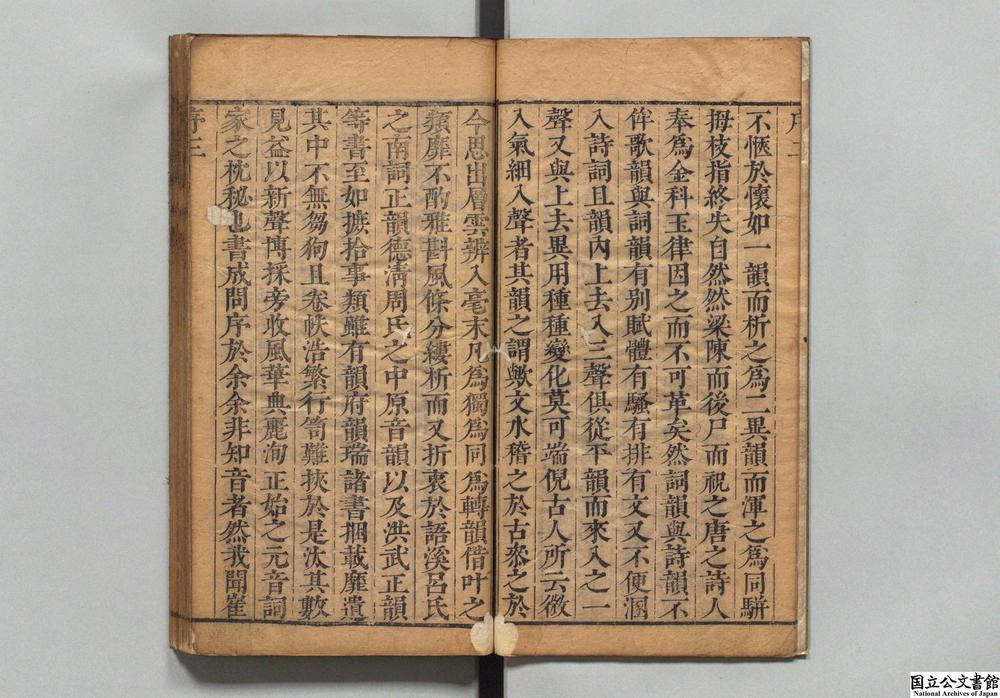 序二
不愜於懷如一韻而析之爲二異韻而渾之爲同騈
拇枝指終失自然然梁陳而後尸而祝之唐之詩人
奉爲金科玉律因之而不可革矣然詞韻與詩韻不
侔歌韻與詞韻有別賦體有騷有排有文又不便溷
入詩詞且韻內上去入三聲俱從平韻而來入之一
聲又與上去異用種種變化莫可端倪古人所云微
入氣細入聲者其韻之謂歟文水稽之於古叅之於
今思出層雲辨入毫末凡爲獨爲同爲轉韻偕叶之
類靡不酌雅斟風條分縷析而又折衷於語溪呂氏
之南詞正韻德淸周氏之中原音韻以及洪武正韻
等書至如摭拾事類雖有韻府韻瑞諸書捆載靡遺
其中不無芻狗且卷帙浩繁行笥難挾於是汰其數
見益以新聲博採旁收風華典麗洵正始之元音詞
家之枕秘也書成問序於余余非知音者然我聞崔
序三
国立公文書館
National Archives of Japan